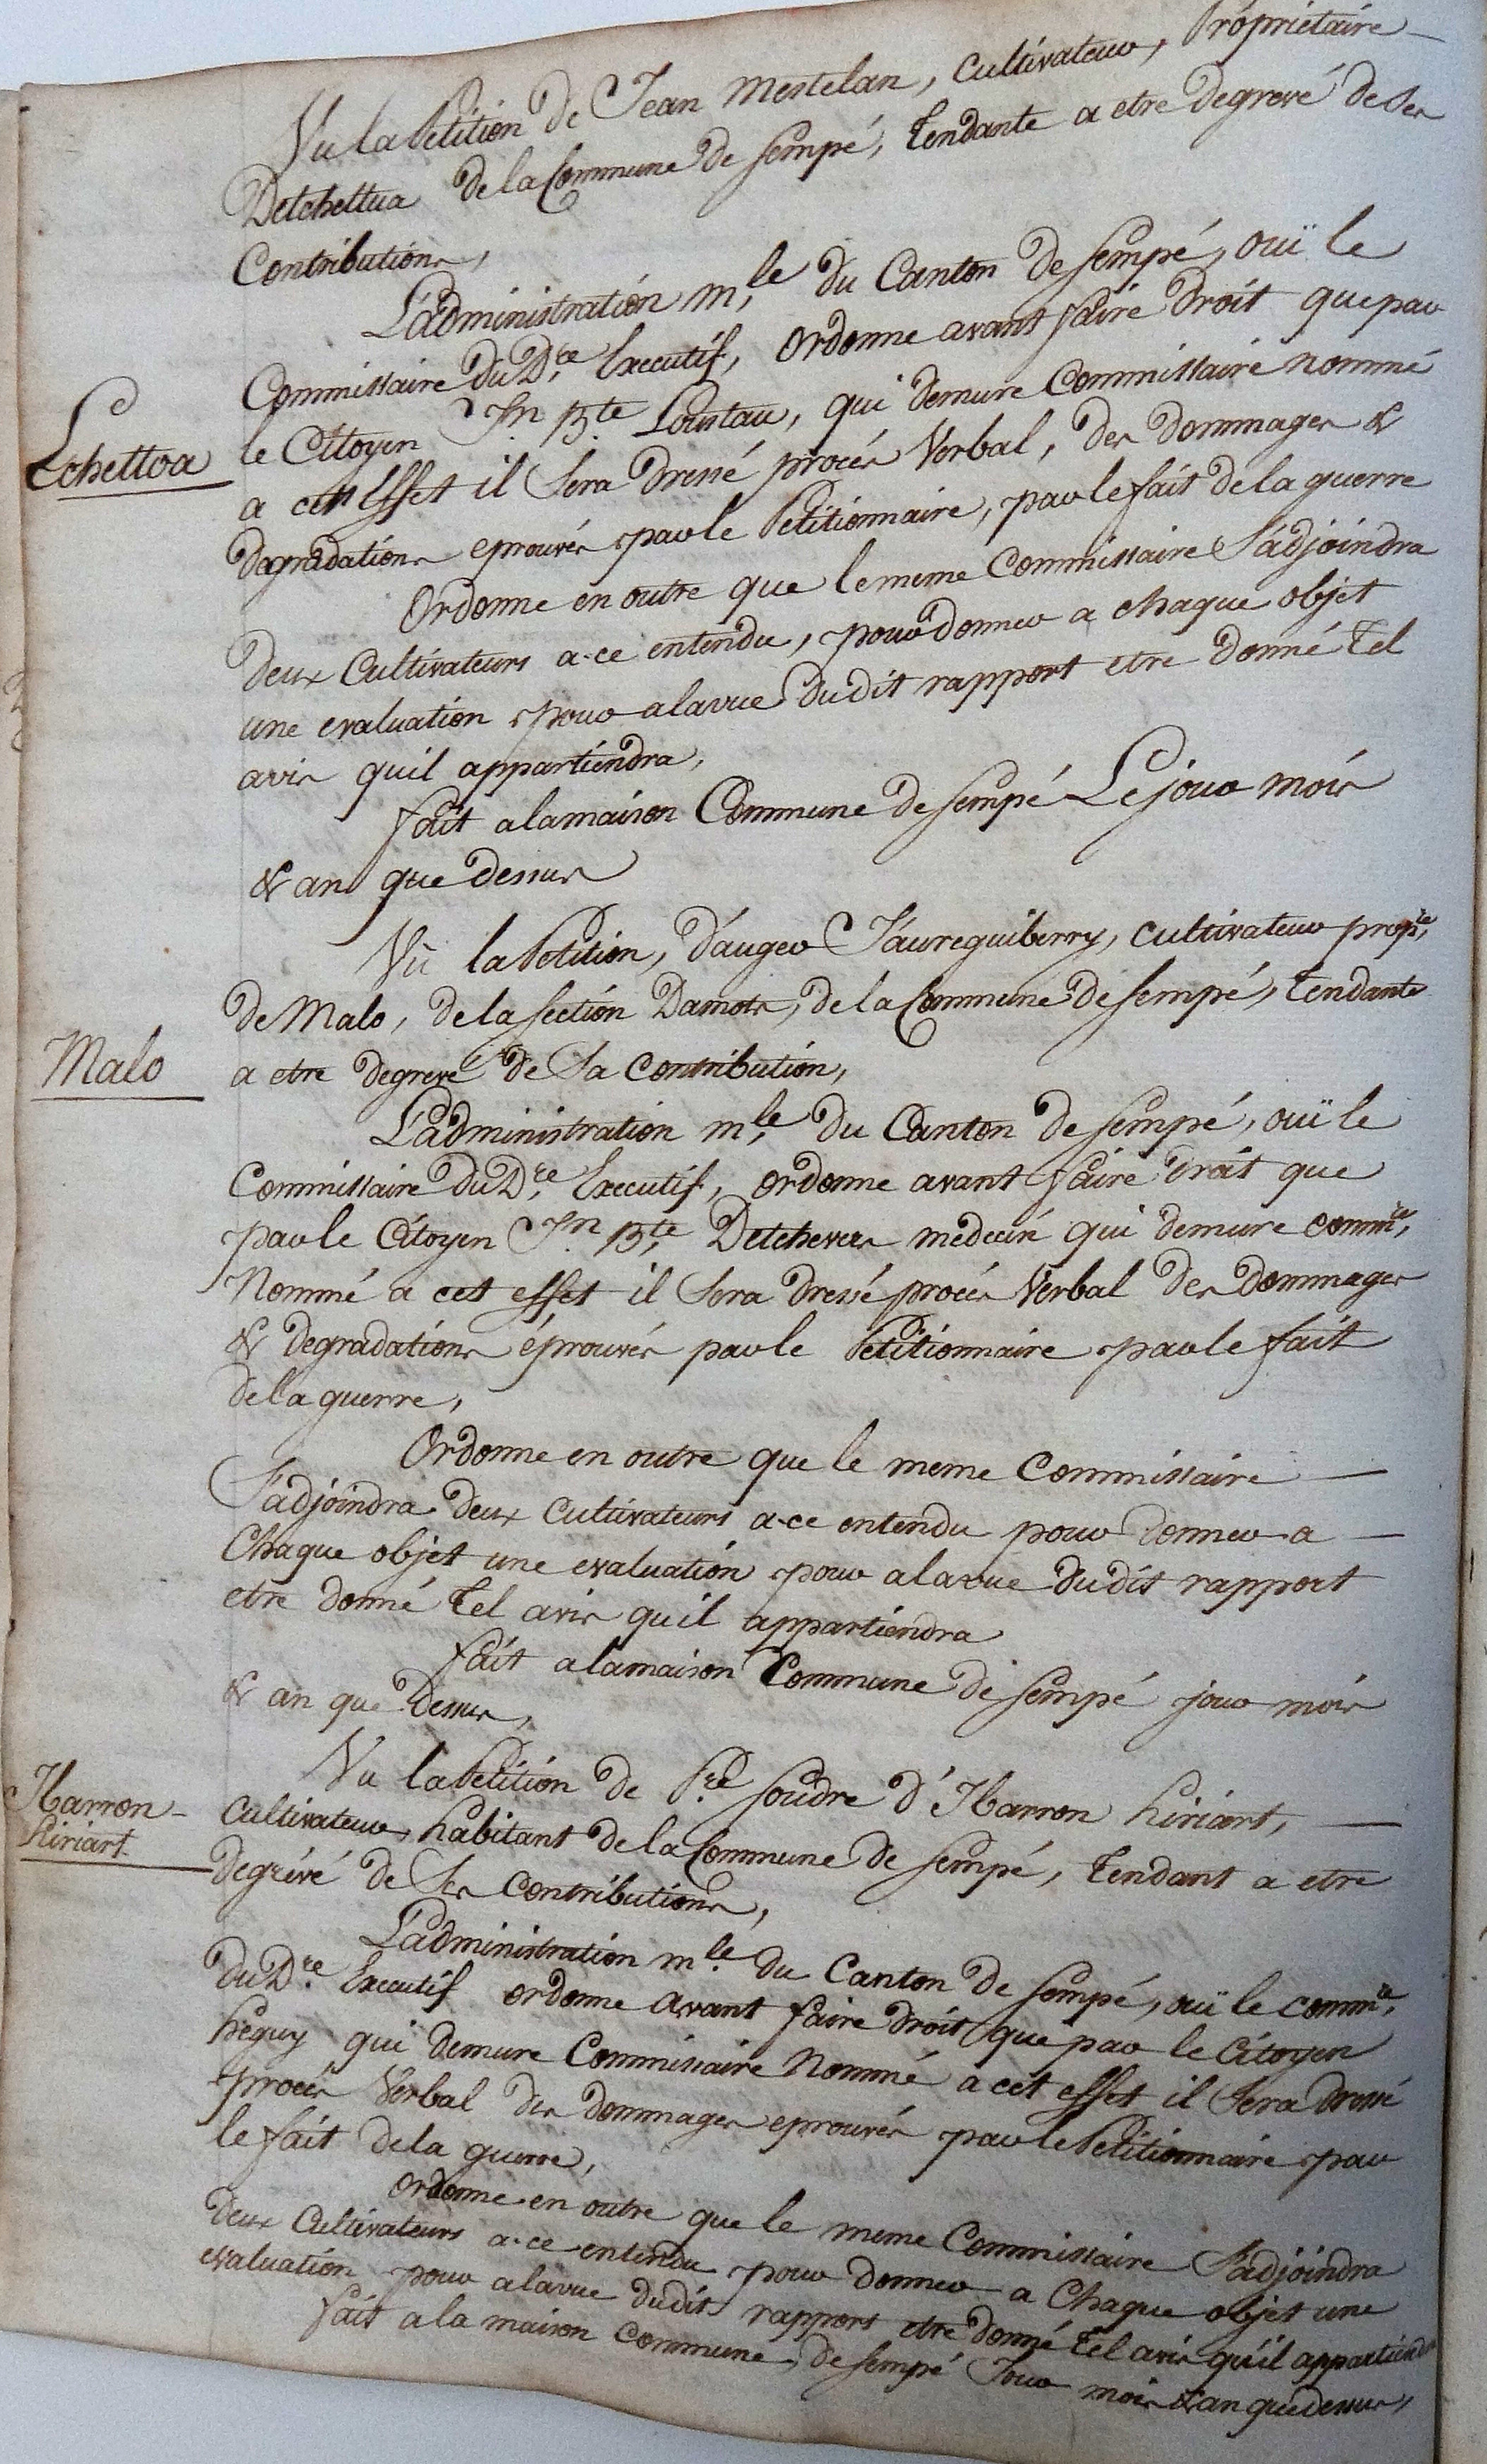 Vu la Petition de Jean Mestelan, Cultivateur, Propriétaire
Detchettua de la Commune de Sempé, Tendante a etre Degrevé de Ses
Contributions,
L'administration m.le du Canton de Sempé, ouï le
Commissaire du D.re Executif, Ordonne avant faire Droit que par
le Citoyen Jn Bte Loustau, qui demure Commissaire nommé
Echettoa
a cet Effet il Sera Dressé procés Verbal, des dommages &
degradations eprouvés par le Petitionnaire, par le fait de la guerre
Ordonne en outre que le meme Commissaire S'adjoindra
deux Cultivateurs a-ce entendu, pour donner a chaque objet
une evaluation pour a la vue dudit rapport etre Donné Tel
avis quil appartiendra,
fait a la maison Commune de Sempé Le jour mois
& an que dessus
Vû la Petition, D'auger Jaureguiberry, cultivateur prop.re
de Malo, de la Section Damots, de la Commune de Sempé, Tendante
Malo
a etre degrevé de Sa Contribution,
L'administration m.le du Canton de Sempé, ouï le
Commissaire du D.re Executif, ordonne avant faire Droit que
par le Citoyen Jn Bte Detchevers medecin qui demure comm.re
Nommé a cet effet il Sera dressé procés Verbal des Dommages
& degradations éprouvés par le Petitionnaire par le fait
de la guerre,
Ordonne en outre que le meme Commissaire
S'adjoindra deux Cultivateurs a-ce entendu pour donner a
Chaque objet une evaluation pour a la vue dudit rapport
etre donné Tel avis quil appartiendra
fait a la maison Commune de Sempé jour mois
& an que Dessus,
Vu la Petition de P.re Soudre d'Ibarron hiriart,
Ibarron-
hiriart
Cultivateur, habitant de la Commune de Sempé, Tendant a etre
degrévé de Ses Contributions,
L'administration m.le du Canton de Sempé, ouï le comm.re
du D.re Executif ordonne avant faire droit que par le Citoyen
héguy qui demure Commissaire Nommé a cet effet il Sera dressé
procés Verbal des dommages eprouvés par le Petitionnaire par
le fait de la guerre,
Ordonne en outre que le meme Commissaire S'adjoindra
deux Cultivateurs a-ce entendu pour donner a Chaque objet une
evaluation pour a la vue dudit rapport etre donné Tel avis qu'il appartiendra
fait a la maison commune, de Sempé Jour mois & an que dessus,